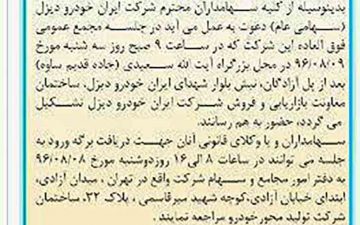 بدینوسیله از کلیه سهامداران محترم شرکت ایران خودرو دیزل
(سهامی عام) دعوت به عمل می آید در جلسه مجمع عمومی
فوق العاده این شرکت که در ساعت ۹ صبح روز سه شنبه مورخ
۹۶/۰۸/۰۹ در محل بزرگراه آیت الله سعیدی (جاده قدیم ساوه)
بعد از پل آزادگان، نبش بلوار شهدای ایران خودرو دیزل، ساختمان
معاونت بازاریابی و فروش شرکت ایران خودرو دیزل تشکیل
می گردد، حضور به هم رسانند.
سهامداران و یا وکلای قانونی آنان جهت دریافت برگه ورود به
جلسه می توانند در ساعات ۸ الی ۱۶ روز دوشنبه مورخ ۹۶/۰۸/۰۸
به دفتر امور مجامع و سهام شرکت واقع در تهران، میدان آزادی،
ابتدای خیابان آزادی، کوچه شهید میرقاسمی، پلاک ۲۲، ساختمان
شرکت تولید محور خودرو مراجعه نمایند.